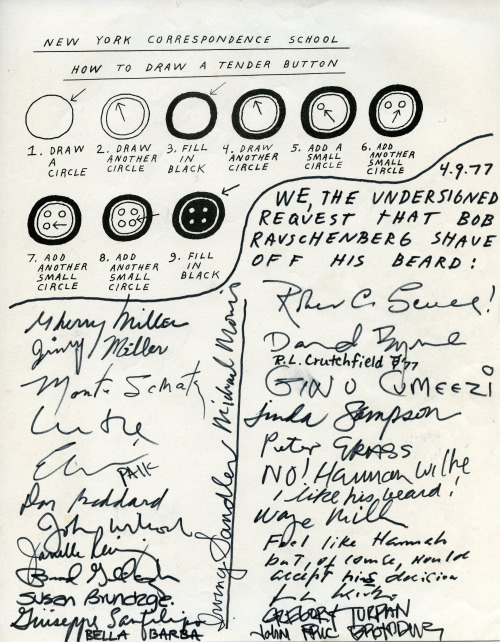 NEW YORK CORRESPONDENCE SCHOOL
HOW TO DRAW A TENDER BUTTON
1. DRAW
A
CIRCLE
2. DRAW
ANOTHER
CIRCLE
3. FILL
IN
BLACK
4. DRAW
ANOTHER
CIRCLE
5. ADD A
SMALL
CIRCLE
6. ADD
ANOTHER
SMALL
CIRCLE
7. ADD
ANOTHER
SMALL
CIRCLE
8. ADD
ANOTHER
SMALL
CIRCLE
9. FILL
IN
BLACK
4.9.77
WE, THE UNDERSIGNED
REQUEST THAT BOB
RAUSCHENBERG SHAVE
OFF HIS BEARD:
Sherry Miller
Jinny Miller
Monte
PAIK
Don
John
Janelle
Susan Brundage
Giuseppe
BELLA BARBA
Irving Sandler Michael Morris
David Byrne
R.L. Crutchfield 77
GINO
Linda Sampson
Peter GRASS
NO! Hannah Wilke
I like his beard!
Feel like Hannah
but, of course, would
accept his decision
GREGORY TURPAN
John ERIC